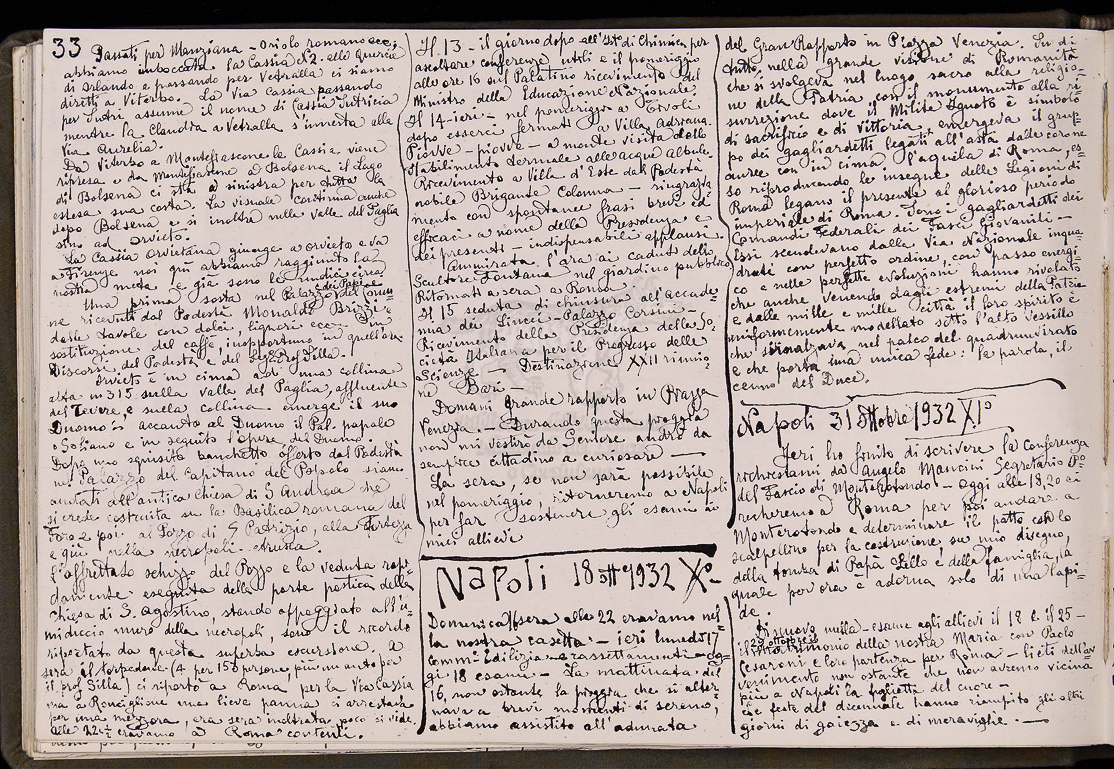 33 Passati per Manziana - Oriolo romano ecc;
abbiamo imboccata la Cassia N.2 alle Querce
di Orlando e passando per Vetralla ci siamo
diretti a Viterbo. La Via Cassia passando
per Sutri assume il nome di Cassia Sutricia
mentre la Claudia a Vetralla s'innesta alla
Via Aurelia.
Da Viterbo a Montefiascone la Cassia viene
ripresa e da Montefiascone a Bolsena il Lago
di Bolsena ci sta a sinistra per tutta la
estesa sua costa. La visuale continua anche
dopo Bolsena e si inoltra nella valle del Paglia
sino ad Orvieto.
La Cassia Orvietana giunge a Orvieto e va
a Firenze noi qui abbiamo raggiunto la
nostra meta e già sono le undici circa.
Una prima sosta nel Palazzo dei Papi
ne ricevuti dal Podestà Monaldo
dalle tavole con dolci, liquori ecc - in
sostituzione del caffè, inopportuno in quell'ora.
Discorsi del Podestà e del Prof Silla.
Orvieto è in cima a di una collina
alta m 315 sulla valle del Paglia, affluente
del Tevere, e sulla collina emerge il suo
Duomo: accanto al Duomo il Pal. papale
o Soliano e in seguito l'opera del Duomo.
Dopo uno squisito banchetto offerto dal Podestà
nel Palazzo del Capitano del Popolo siamo
andati all'antica chiesa di S Andrea che
si crede costruita su la Basilica romana del
Foro e poi al Pozzo di S Patrizio, alla Fortezza
e qui nella necropoli etrusca.
L'affrettato schizzo del Pozzo e la veduta rapi-
damente eseguita della parte poetica della
chiesa di S. Agostino, stando appoggiato all'u-
midiccio muro della necropoli, sono il ricordo
riportato da questa superba escursione. A
sera il torpedone (4 per 150 persone, più un auto per
il prof Silla) ci riportò a Roma per la Via Cassia
ma a Ronciglione una lieve panna ci arrestava
per una mezzora, era sera inoltrata, poco si vide.
Alle 22½ eravamo a Roma contenti.
Il 13 - il giorno dopo all'Ist. di Chimica per
ascoltare conferenze utili e il pomeriggio
alle ore 16 sul Palatino ricevimento del
Ministro della Educazione Nazionale.
Il 14 - ieri - nel pomeriggio a Tivoli
dopo esserci fermati a Villa Adriana.
Piovve - piovve - a monte visita dello
Stabilimento termale alle acque albule.
Ricevimento a Villa d'Este dal Podestà
nobile Brigante Colonna - ringrazia
mento con spontanee frasi brevi ed
efficaci a nome della Presidenza e
dei presenti - indispensabili applausi.
Ammirata l'ara ai caduti dello
Scultore Fontana nel giardino pubblico
Ritornati a sera a Roma.
Il 15 seduta di chiusura all'accade-
mia dei Lincei - Palazzo Corsini -
Ricevimento della Presidenza della So-
cietà Italiana per il Progresso delle
Scienze - Destinazione XXII riunio
ne Bari -
Domani grande rapporto in Piazza
Venezia - Durando questa pioggia
non mi vestirò da Seniore andrò da
semplice cittadino a curiosare -
La sera, se non sarà possibile
nel pomeriggio, ritorneremo a Napoli
per far sostenere gli esami ai
miei allievi
Napoli 18 ott 1932 Xº
Domenica 16 sera alle 22 eravamo nel-
la nostra casetta - ieri lunedì 17
Comm. Edilizia rassettamenti - og-
gi 18 esami - La mattinata del
16, non ostante la pioggia che si alter
nava a brevi momenti di sereno,
abbiamo assistito all'adunata
del Gran Rapporto in Piazza Venezia. Fu di
tutto, nella grande visione di Romanità
che si svolgeva nel luogo sacro alla religio-
ne della Patria, con il monumento alla ri-
surrezione dove il Milite Ignoto è simbolo
di sacrificio e di vittoria, emergeva il grup-
po dei gagliardetti legati all'asta dalle corone
auree con in cima l'aquila di Roma, es-
so riproducendo le insegne delle Legioni di
Roma legano il presente al glorioso periodo
imperiale di Roma. Sono i gagliardetti dei
Comandi Federali dei Fasci Giovanili -
Essi scendevano dalla Via Nazionale inqua-
drati con perfetto ordine, con passo energi-
co e nelle perfette evoluzioni hanno rivelato
che anche venendo dagli estremi della Patria
e dalle mille e mille città il loro spirito è
uniformemente modellato sotto l'alto vessillo
che s'innalzava nel palco del quadrumvirato
e che porta una unica fede: la parola, il
cenno del Duce.
Napoli 31 Ottobre 1932 XIº
Ieri ho finito di scrivere la conferenza
richiestami da Angelo Mancini Segretario Pº
del Fascio di Monterotondo - oggi alle 18,20 ci
recheremo a Roma per poi andare a
Monterotondo e determinare il patto con lo
scalpellino per la costruzione su mio disegno,
della tomba di Papà Lello e della famiglia, la
quale per ora è adorna solo di una lapi-
de.
Di nuovo nulla - esame agli allievi il 18 e il 25 -
matrimonio della nostra Maria con Paolo
Cesaroni e loro partenza per Roma - lieti dell'av
venimento non ostante che non avremo vicina
più a Napoli la figlietta del cuore -
Le feste del decennale hanno riempito gli altri
giorni di gaiezza e di meraviglie. -